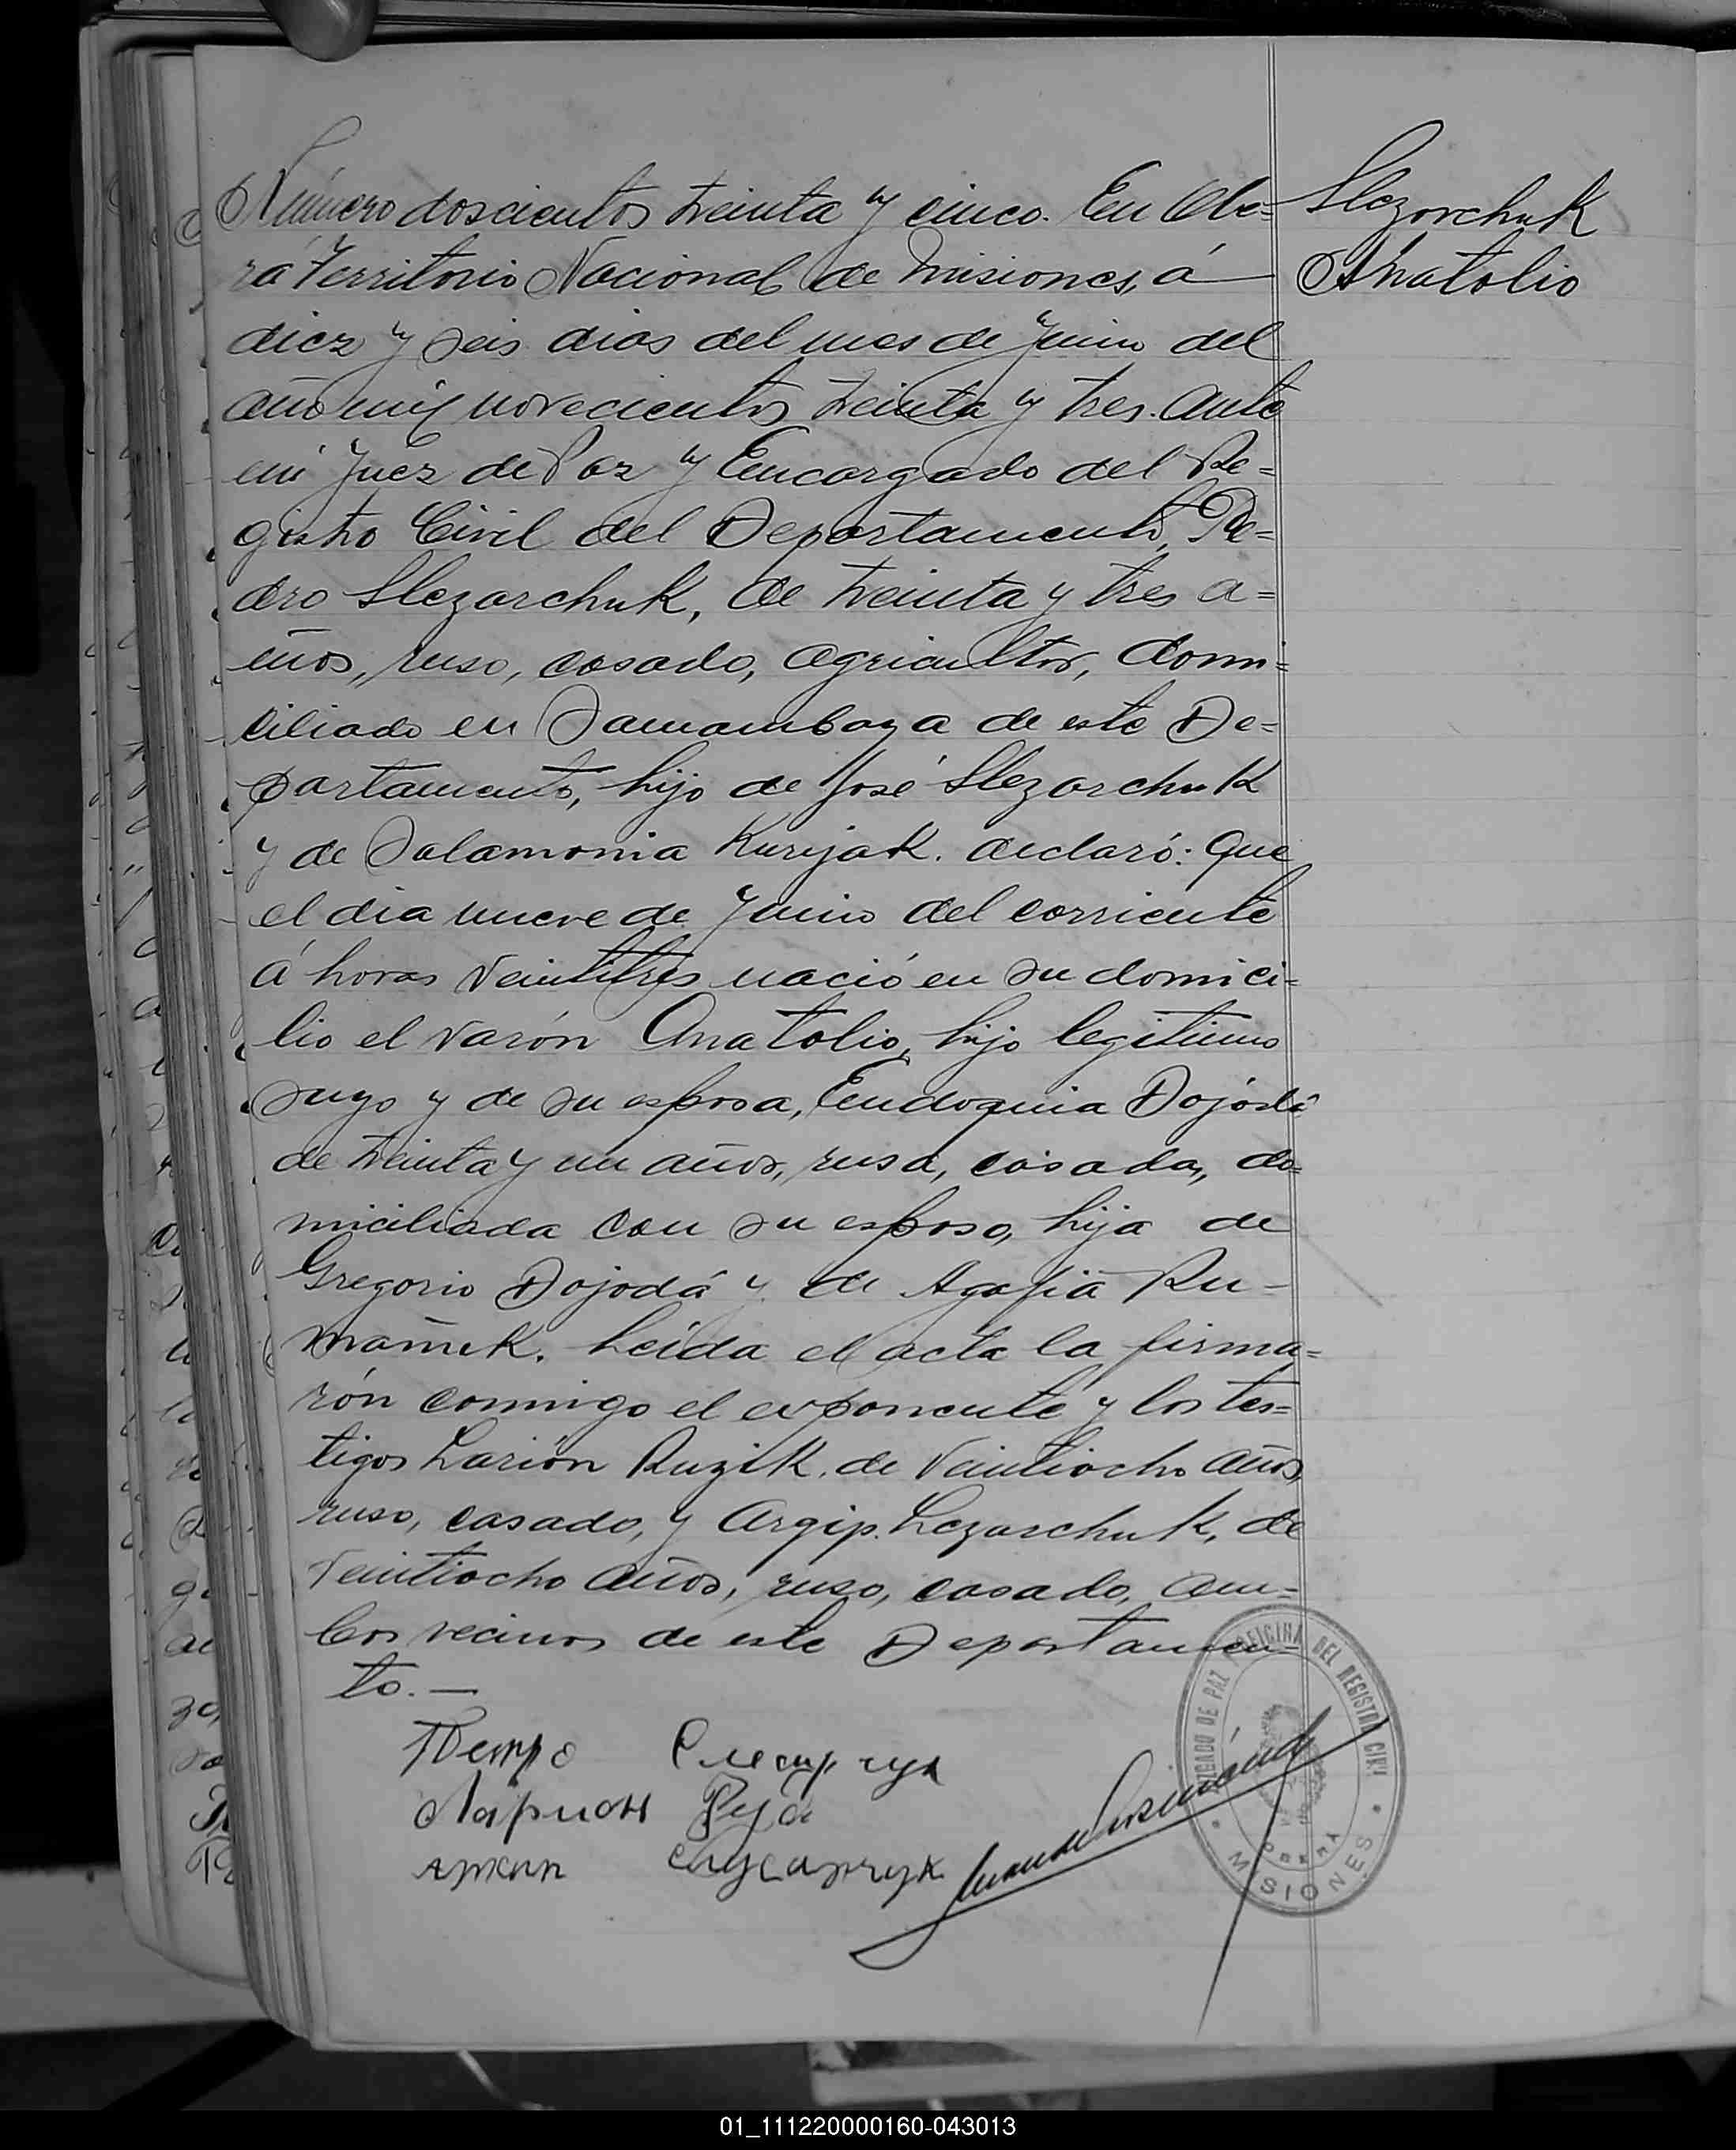 Número doscientos treinta y cinco. En Obe=
rá Territorio Nacional de Misiones, á
diez y seis dias del mes de Junio del
año mil novecientos treinta y tres. Ante
mi Juez de Paz y Encargado del Re=
gistro Civil del Departamento, Pe=
dro Slezarchuk, de treinta y tres a=
ños, ruso, casado, agricultor, domi=
ciliado en Samambaya de este De=
partamento, hijo de José Slezarchuk
y de Salamonia Kurijak. declaró: Que
el dia nueve de Junio del corriente
á horas veintitres nació en su domici=
lio el varón Anatolio, hijo legitimo
suyo y de su esposa, Eudoquia Dojodá
de treinta y un años, rusa, casada, do=
miciliada con su esposo, hija de
Gregorio Dojodá y de Agafia Ru-
mañuk. Leida el acta la firma=
rón conmigo el exponente y los tes=
tigos Larión Ruzik, de veintiocho años
ruso, casado, y Argip. Lezarchuk, de
veintiocho años, ruso, casado, am=
bos vecinos de este Departamen-
to. —
Slezorchuk
Anatolio
Петро
Ларион
Архип
JUZGADO DE PAZ OFICINA DEL REGISTRO CIVIL
OBERÁ
MISIONES
01_111220000160-043013